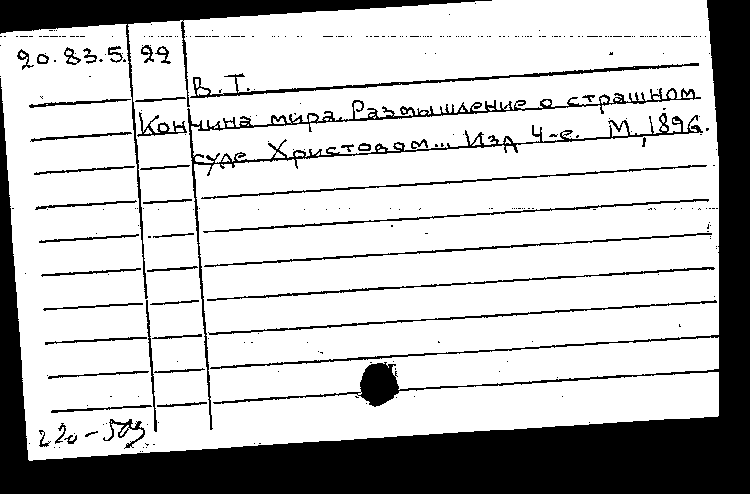 20.83.5. 22
В.Т.
Кончина мира. Размышление о страшном
суде Христовом... Изд 4-е. М., 1896.
220-503